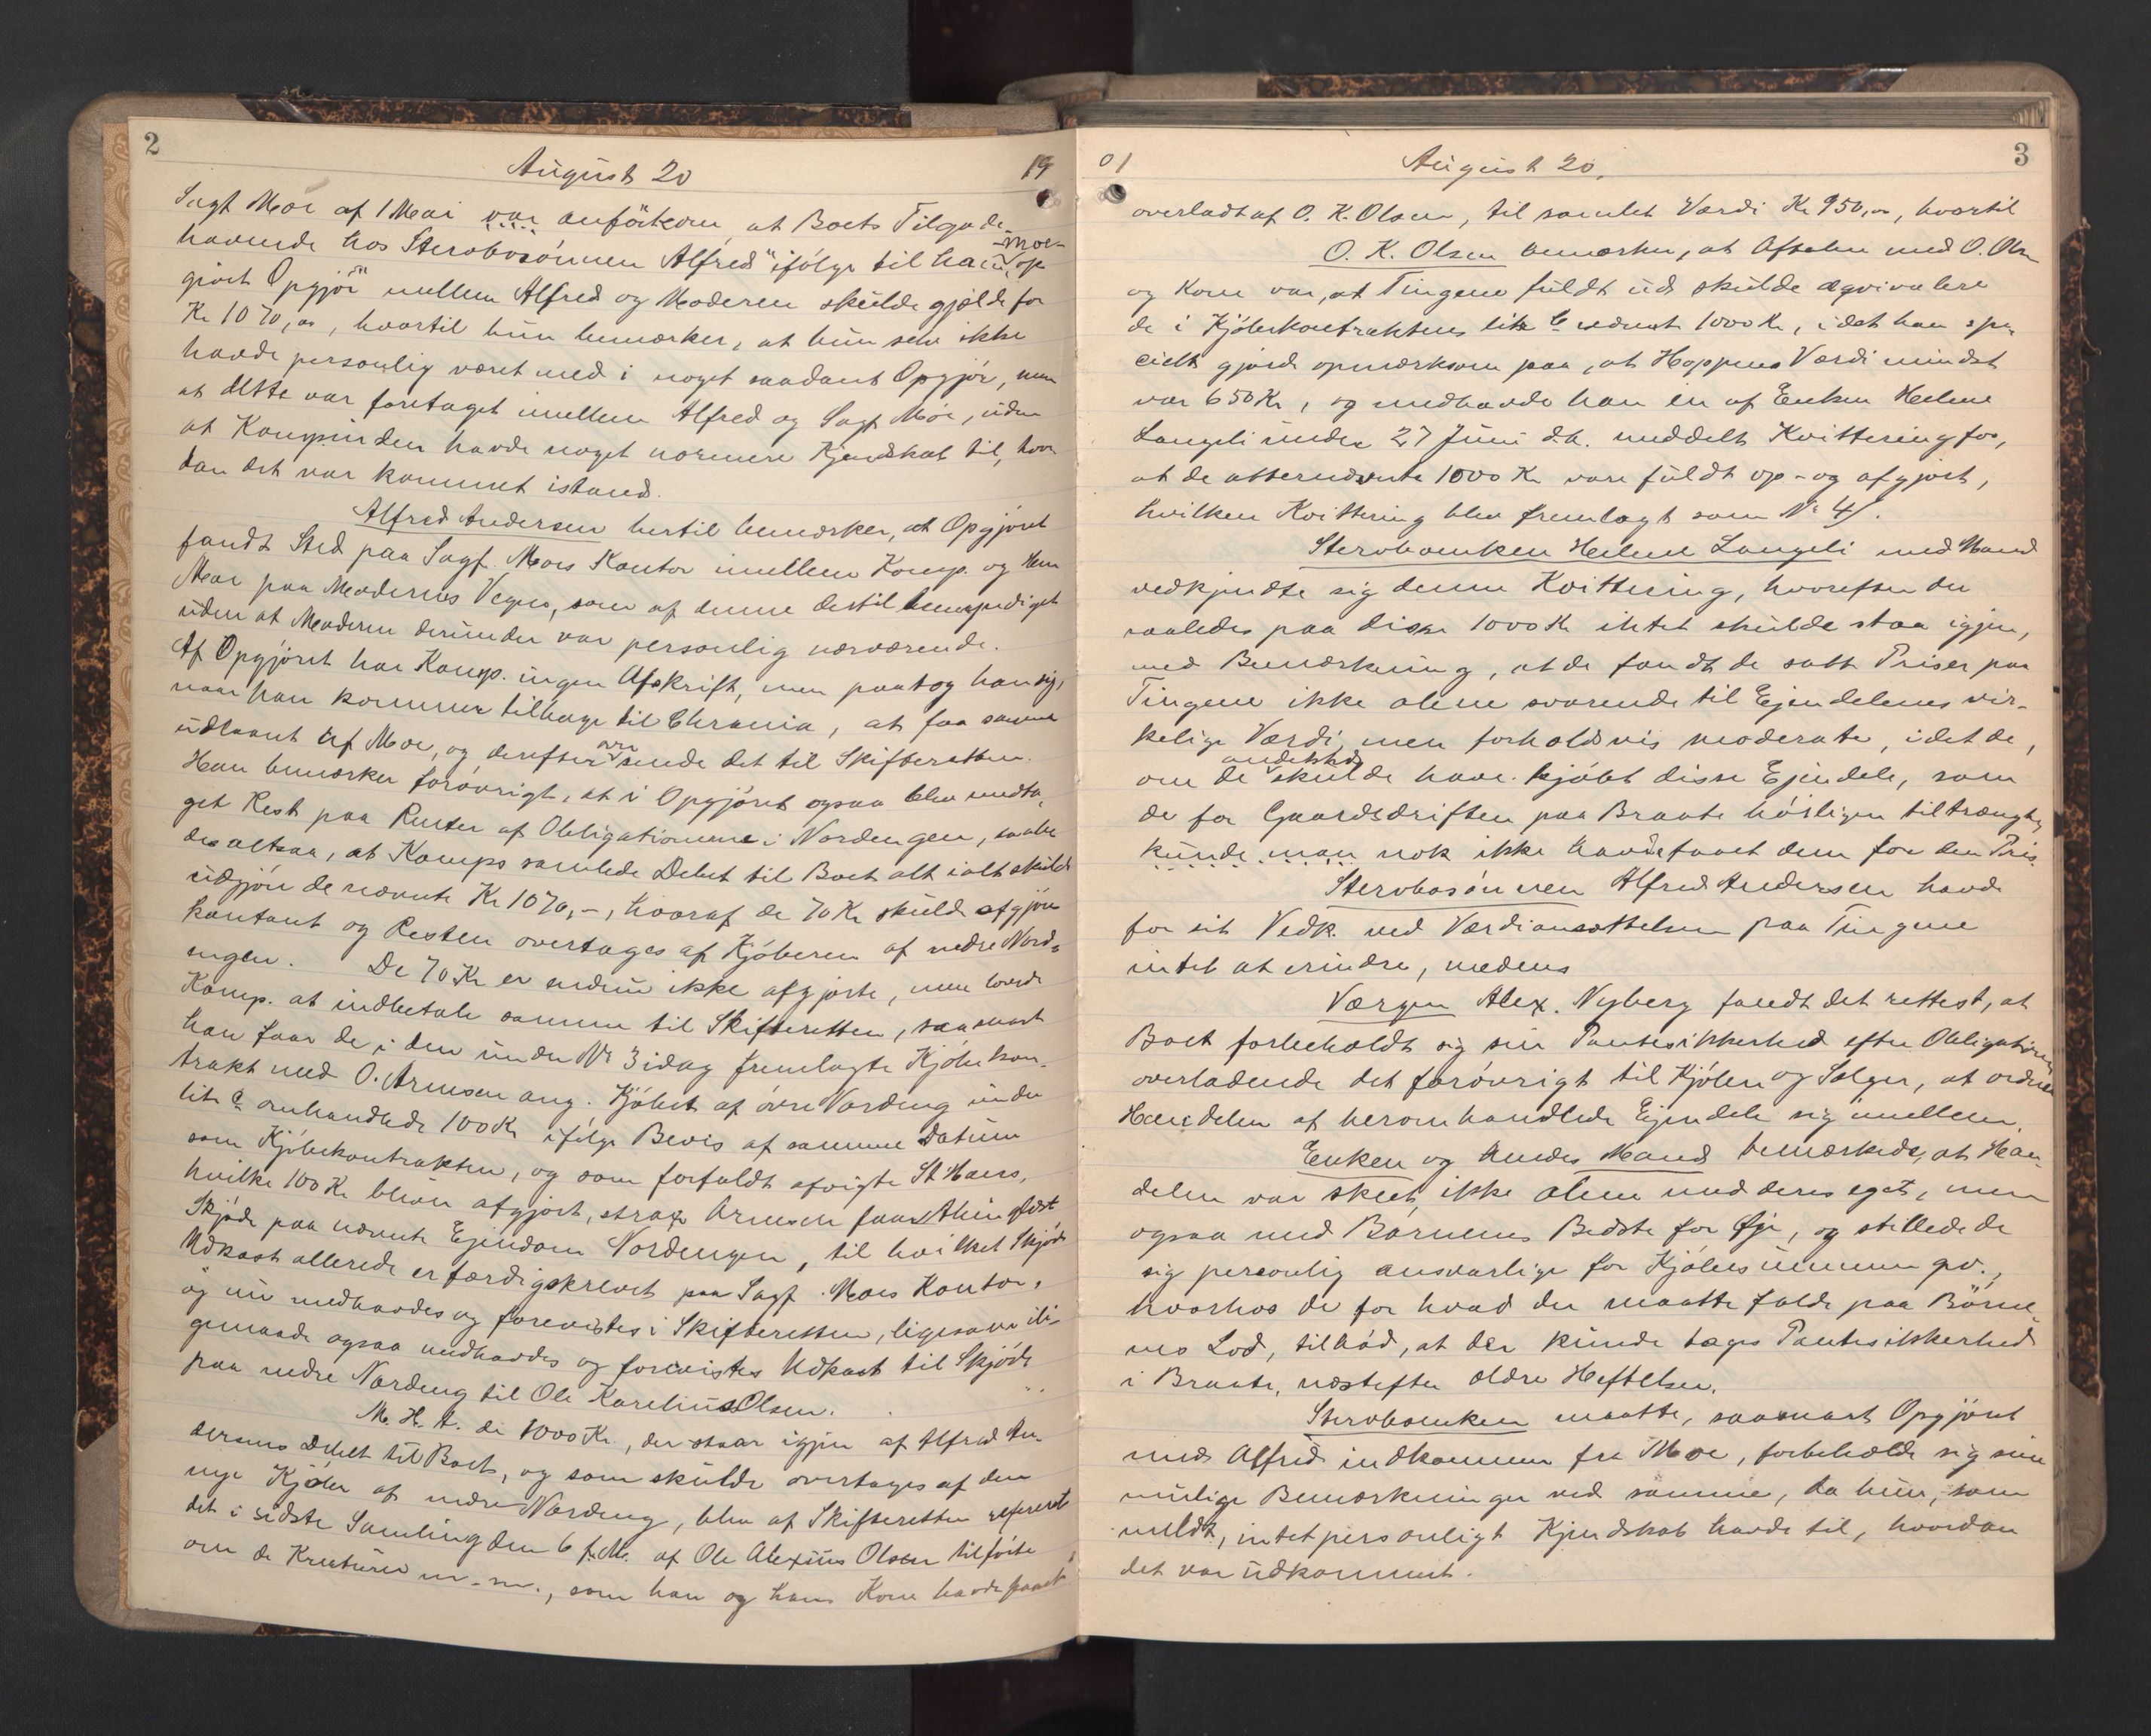 2
August 20
19
Sagf. Moe af 1 Mai var anført om, at Boets Tilgode-
havende hos Stervbosönnen Alfred "ifølge til ham, Moe op-
gjort Opgjör" mellem Alfred og Moderen skulde gjælde for
Kr 1070,00, hvortil hun bemærker, at hun selv ikke
havde personlig været med i noget saadant Opgjör, men
at dette var foretaget imellem Alfred og Sagf Moe, uden
at Kompinden havde noget nærmere Kjendskab til, hvor
dan det var kommet istand.
Alfred Andersen hertil bemærker, at Opgjöret
fandt Sted paa Sagf. Moes Kontor imellem Komp. og Herr
Moe paa Moderens Vegne, som af denne dertil bemyndiget
uden at Moderen derunder var personlig nærværende.
Af Opgjöret har Komp. ingen Afskrift, men paatog han sig,
naar han kommer tilbage til Chrania, at faa samme
udlaant af Moe, og derefter sende det til Skifteretten.
Han bemærker forövrigt, at i Opgjöret ogsaa blev medta-
get Rest paa Renter af Obligationerne i Nordengen, saale
des altsaa, at Komps samlede Debet til Boet alt ialt skulde
udgjöre de nævnte Kr 1070,-, hvoraf de 70 Kr skulde afgjöres
kontant og Resten overtages af Kjöberen af nedre Nord-
engen. De 70 Kr er endnu ikke afgjorte, men lovede
Komp. at indbetale samme til Skifteretten, saasnart
han faar de i den under Nr 3 idag fremlagte Kjöbekon-
trakt med O. Arnesen ang. Kjöbet af övre Nordeng under
lit. c omhandlede 100 Kr ifölge Bevis af samme Datum
som Kjöbekontrakten, og som forfaldt afvigte St Hans,
hvilke 100 Kr bliver afgjort, strax Arnesen faar thinglæst
Skjöde paa nævnte Ejendom Nordengen, til hvilket Skjöde
Udkast allerede er færdigskrevet paa Sagf. Moes Kontor,
og nu medhavdes og forevistes i Skifteretten, ligesom ili-
gemaade ogsaa medhavdes og forevistes Udkast til Skjöde
paa nedre Nordeng til Ole Karelius Olsen.
M. H. t. de 1000 Kr, der staar igjen af Alfred An-
dersens Debet til Boet, og som skulde overtages af den
nye Kjöber af nedre Nordeng, blev af Skifteretten refereret
det i sidste Samling den 6 f. M. af Ole Alexius Olsen tilförte
om de Kreaturer m.m., som han og hans Kone havde faaet
01
August 20.
3
overladt af O. K. Olsen, til samlet Værdi Kr 950,00, hvortil
O. K. Olsen bemærker, at Aftalen med O. Olsen
og Kone var, at Tingene fuldt ud skulde æqvivalere
de i Kjöbekontraktens lit. C nævnte 1000 Kr, i det han spe-
cielt gjorde opmærksom paa, at Hoppens Værdi mindst
var 650 Kr, og medhavde han en af Enken Helene
Langeli under 27 Juni d.A. meddelt Kvittering for,
at de otternævnte 1000 Kr vare fuldt op- og afgjort,
hvilken Kvittering blev fremlagt som Nr 4/.
Stervboenken Helene Langeli med Mand
vedkjendte sig denne Kvittering, hvorefter der
saaledes paa disse 1000 Kr intet skulde staa igjen,
med Bemærkning, at de fandt de satte Priser paa
Tingene ikke alene svarende til Ejendelenes vir-
kelige Værdi, men forholdsvis moderate, idet de,
om de andetsteds skulde have kjöbt disse Ejendele, som
de for Gaardsdriften paa Braate höiligen tiltrængte,
kunde man nok ikke havde faaet dem for den Pris.
Stervbosönnen Alfred Andersen havde
for sit Vedk. ved Værdiansættelsen paa Tingene
intet at erindre, medens
Værgen Alex. Nyberg fandt det rettest, at
Boet forbeholdt sig sin Pantesikkerhed efter Obligationen
overladende det forövrigt til Kjöber og Sælger, at ordne
Handelen af heromhandlede Ejendele sig imellem.
Enken og hendes Mand bemærkede, at Han-
delen var skeet, ikke alene med deres eget, men
ogsaa med Börnenes Bedste for Øje, og stillede de
sig personlig ansvarlige for Kjöbesummen pv.,
hvorhos de for hvad der maatte falde paa Börne-
nes Lod, tilböd, at der kunde tages Pantesikkerhed
i Braate, næstefter ældre Heftelser.
Stervboenken maatte, saasnart Opgjöret
med Alfred indkommer fra Moe, forbeholde sig sine
mulige Bemærkninger ved samme, da hun, som
meldt, intet personligt Kjendskab havde til, hvordan
det var udkommet.